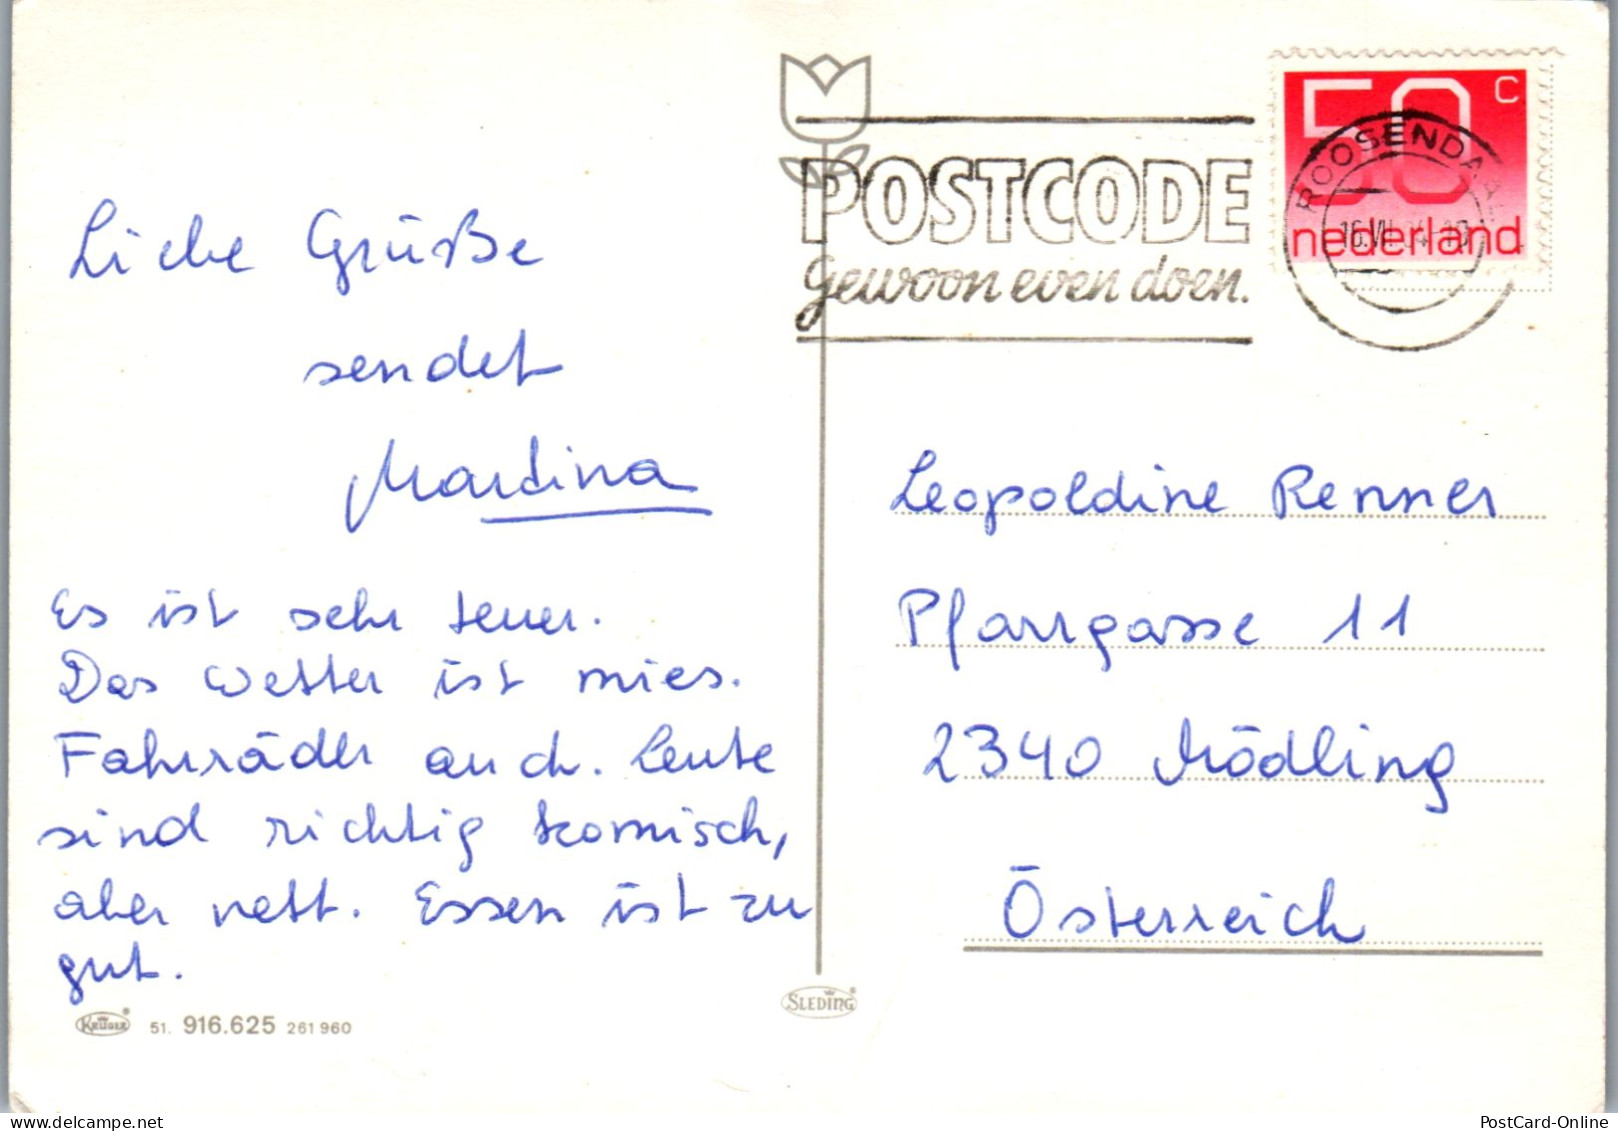 Liebe Grüße
sendet
Martina
Es ist sehr teuer.
Das Wetter ist mies.
Fahrräder auch. Leute
sind richtig komisch,
aber nett. Essen ist zu
gut.
KRÜGER ® 51. 916.625 261 960
SLEDING ®
POSTCODE
gewoon even doen.
50 c
nederland
ROOSENDAAL
Leopoldine Renner
Pfarrgasse 11
2340 Mödling
Österreich
PostCard-Online